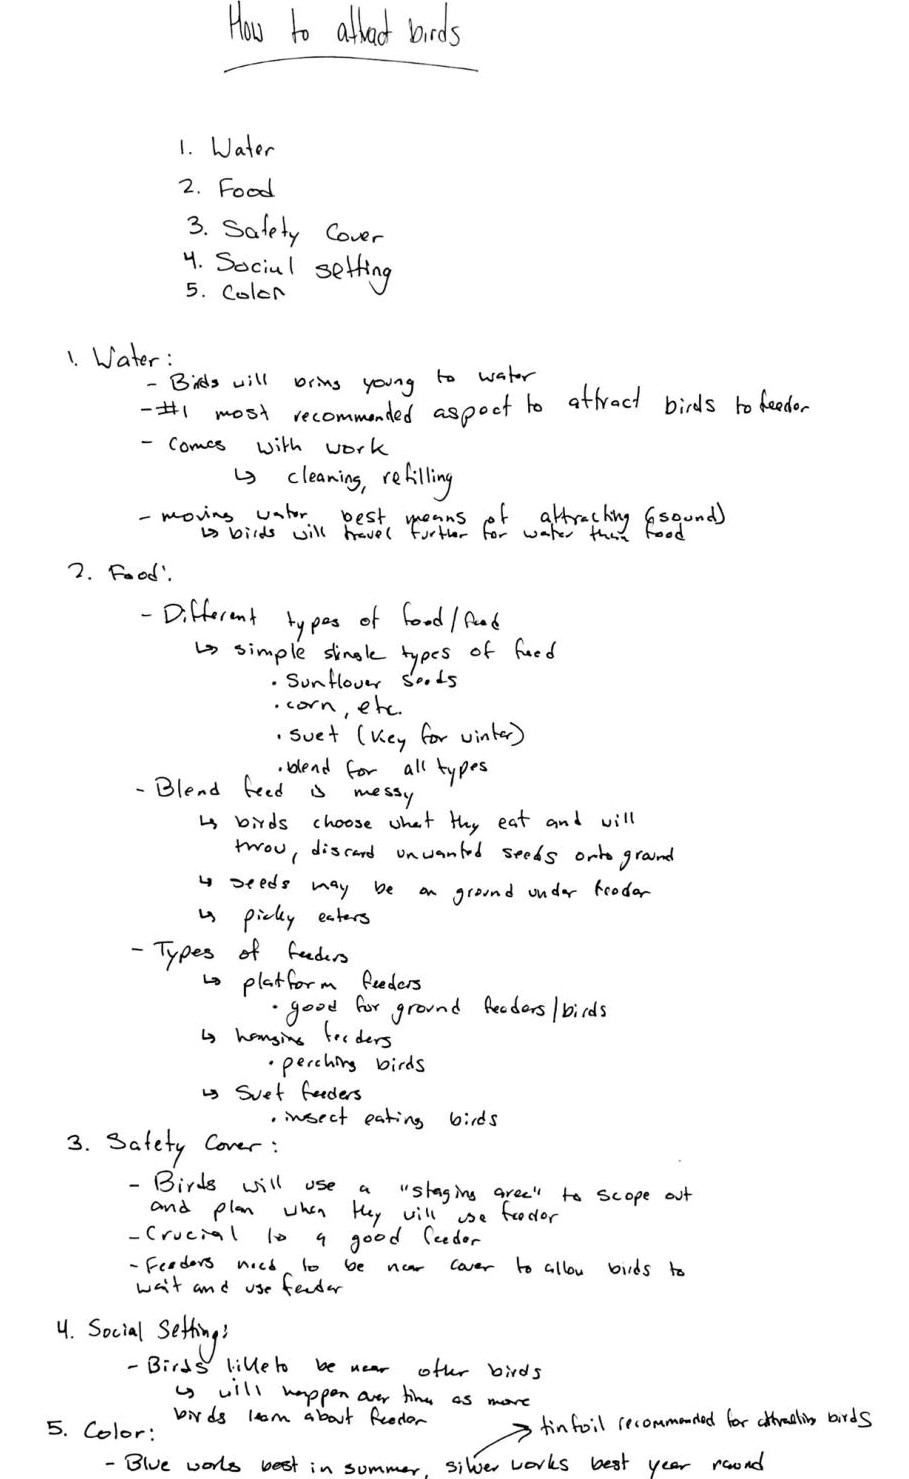 How to attract birds
1. Water
2. Food
3. Safety Cover
4. Social setting
5. Color
1. Water:
- Birds will bring young to water
- #1 most recommended aspect to attract birds to feeder
- Comes with work
↳ cleaning, refilling
- moving water best means of attracting (sound)
↳ birds will travel further for water than food
2. Food:
- Different types of food/feed
↳ simple single types of feed
• Sunflower seeds
• corn, etc.
• suet (key for winter)
• blend for all types
- Blend feed is messy
↳ birds choose what they eat and will
throw, discard unwanted seeds onto ground
↳ seeds may be on ground under feeder
↳ picky eaters
- Types of feeders
↳ platform feeders
• good for ground feeders/birds
↳ hanging feeders
• perching birds
↳ Suet feeders
• insect eating birds
3. Safety Cover:
- Birds will use a "staging area" to scope out
and plan when they will use feeder
- Crucial to a good feeder
- Feeders need to be near cover to allow birds to
wait and use feeder
4. Social Setting:
- Birds like to be near other birds
↳ will happen over time as more
birds learn about feeder
5. Color:
→ tinfoil recommended for attracting birds
- Blue works best in summer, silver works best year round